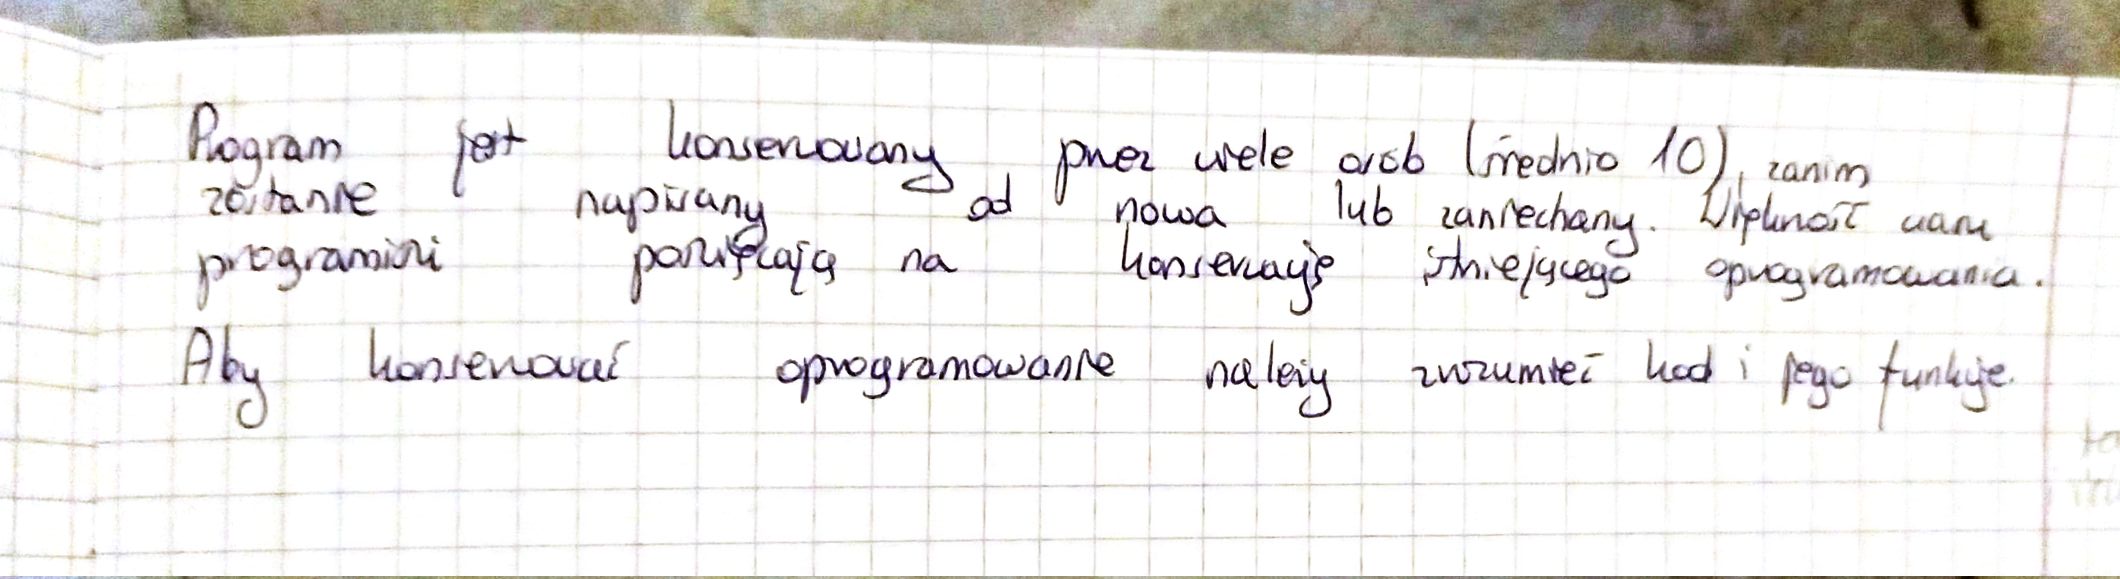 Program jest konserwowany przez wiele osób (średnio 10), zanim
zostanie napisany od nowa lub zaniechany. Większość czasu
programiści poświęcają na konserwację istniejącego oprogramowania.
Aby konserwować oprogramowanie należy zrozumieć kod i jego funkcje.